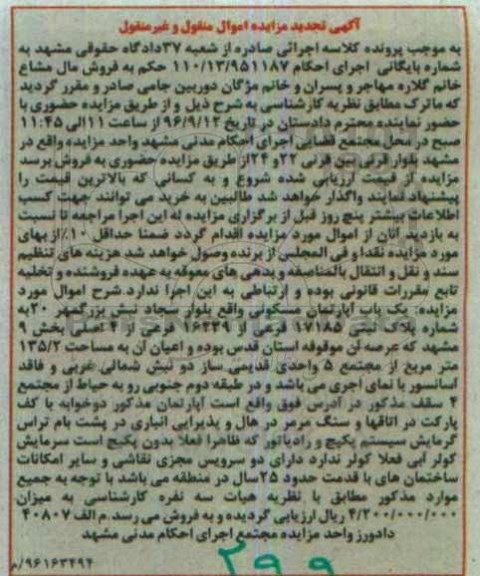 آگهی تجدید مزایده اموال منقول و غیرمنقول
به موجب پرونده کلاسه اجرائی صادره از شعبه ۳۷دادگاه حقوقی مشهد به
شماره بایگانی اجرای احکام ۱۱۰/۱۳/۹۵۱۱۸۷ حکم به فروش مال مشاع
خانم گلاره مهاجر و پسران و خانم مژگان دوربین جامی صادر و مقرر گردید
که ماترک مطابق نظریه کارشناسی به شرح ذیل و از طریق مزایده حضوری با
حضور نماینده محترم دادستان در تاریخ ۹۶/۹/۱۲ از ساعت ۱۱الی ۱۱:۴۵
صبح در محل مجتمع قضایی اجرای احکام مدنی مشهد واحد مزایده واقع در
مشهد بلوار قرنی بین قرنی ۲۲و ۲۴از طریق مزایده حضوری به فروش برسد
مزایده از قیمت ارزیابی شده شروع و به کسانی که بالاترین قیمت را
پیشنهاد نمایند واگذار خواهد شد طالبین به خرید می توانند جهت کسب
اطلاعات بیشتر پنج روز قبل از برگزاری مزایده له این اجرا مراجعه تا نسبت
به بازدید آنان از اموال مورد مزایده اقدام گردد ضمنا حداقل ۱۰٪از بهای
مورد مزایده نقدا و فی المجلس از برنده وصول خواهد شد هزینه های تنظیم
سند و نقل و انتقال بالمناصفه و بدهی های معوقه به عهده فروشنده و تخلیه
تابع مقررات قانونی بوده و ارتباطی به این اجرا ندارد.شرح اموال مورد
مزایده: یک باب آپارتمان مسکونی واقع بلوار سجاد نبش بزرگمهر ۲۰به
شماره پلاک ثبتی ۱۷۱۸۵ فرعی از ۱۶۲۳۹ فرعی از ۴ اصلی بخش ۹
مشهد که عرصه آن موقوفه استان قدس بوده و اعیان آن به مساحت ۱۳۵/۲
متر مربع از مجتمع ۵ واحدی قدیمی ساز دو نبش شمالی غربی و فاقد
آسانسور با نمای آجری می باشد و در طبقه دوم جنوبی رو به حیاط از مجتمع
۴ سقف مذکور در آدرس فوق واقع است آپارتمان مذکور دوخوابه با کف
پارکت در اتاقها و سنگ مرمر در هال و پذیرایی انباری در پشت بام تراس
گرمایش سیستم پکیج و رادیاتور که ظاهرا فعلا بدون پکیج است سرمایش
کولر آبی فعلا کولر ندارد دارای دو سرویس مجزی نقاشی و سایر امکانات
ساختمان های با قدمت حدود ۲۵سال در منطقه می باشد با توجه به جمیع
موارد مذکور مطابق با نظریه هیات سه نفره کارشناسی به میزان
۴/۲۰۰/۰۰۰/۰۰۰ ریال ارزیابی گردیده و به فروش می رسد.م الف ۴۰۸۰۷
دادورز واحد مزایده مجتمع اجرای احکام مدنی مشهد
۹۶۱۶۳۴۹۴/م
۳۹۹